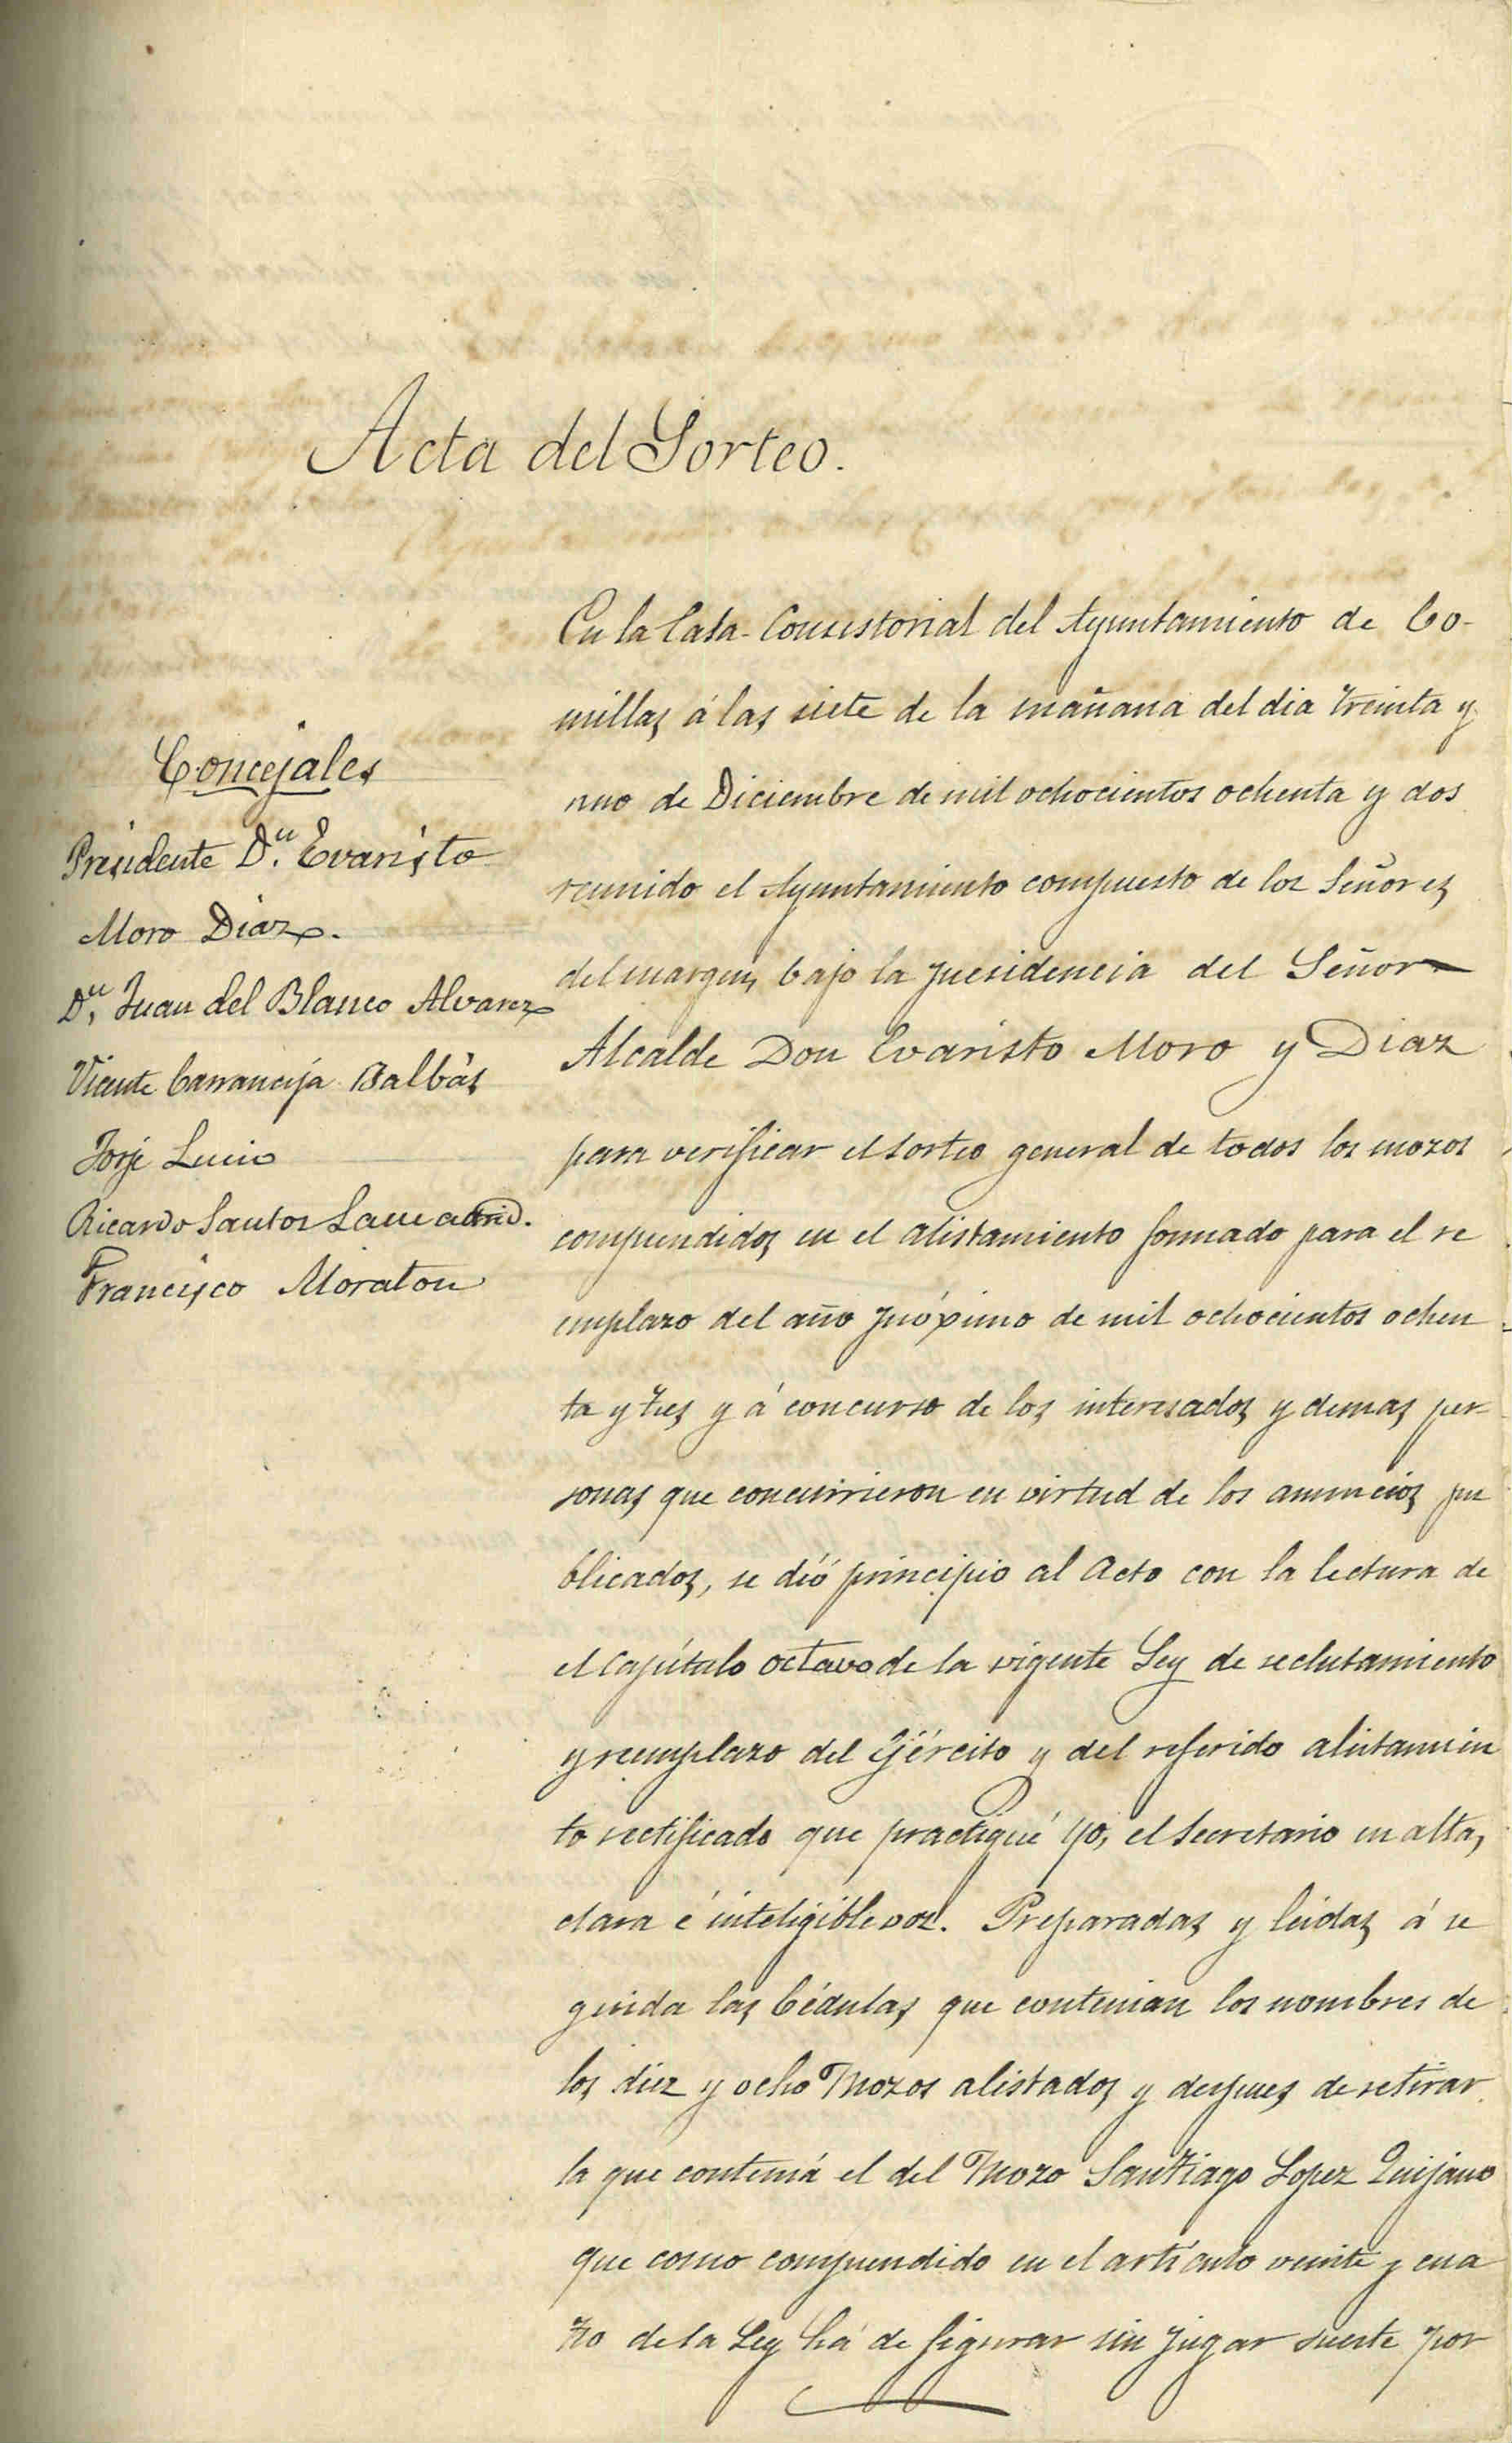 Acta del Sorteo.
Concejales
Presidente D.n Evaristo
Moro Diaz.
D.n Juan del Blanco Alvarez
Vicente Carranceja Balbás
Jorje Lucio
Ricardo Santos Lamadrid.
Francisco Moraton
En la Casa-Consistorial del Ayuntamiento de Co-
millas á las siete de la mañana del dia treinta y
uno de Diciembre de mil ochocientos ochenta y dos
reunido el Ayuntamiento compuesto de los Señores
del margen, bajo la presidencia del Señor
Alcalde Don Evaristo Moro y Diaz
para verificar el sorteo general de todos los mozos
comprendidos en el alistamiento formado para el re
emplazo del año próximo de mil ochocientos ochen
ta y tres y á concurso de los interesados y demas per-
sonas que concurrieron en virtud de los anuncios pu
blicados, se dió principio al acto con la lectura de
el Capítulo octavo de la vigente Ley de reclutamiento
y reemplazo del Ejército y del referido alistamien
to rectificado que practiqué yo, el Secretario en alta,
clara é inteligible voz. Preparadas y leidas á se
guida las Cédulas que contenian los nombres de
los diez y ocho Mozos alistados y despues de retirar
la que contenia el del Mozo Santiago Lopez Quijano
que como comprendido en el artículo veinte y cua
tro de la Ley há de figurar sin jugar suerte por